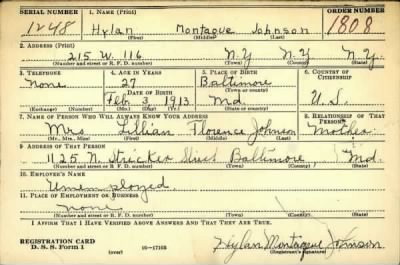 SERIAL NUMBER 1. NAME (Print) ORDER NUMBER
1248 Hylan Montague Johnson 1808
(First) (Middle) (Last)
2. ADDRESS (Print)
215 W. 116 N.Y N.Y N.Y.
(Number and street or R. F. D. number) (Town) (County) (State)
3. TELEPHONE 4. AGE IN YEARS 5. PLACE OF BIRTH 6. COUNTRY OF CITIZENSHIP
None 27 Baltimore
DATE OF BIRTH (Town or county)
Feb 3 1913 Md. U.S.
(Exchange) (Number) (Mo.) (Day) (Yr.) (State or country)
7. NAME OF PERSON WHO WILL ALWAYS KNOW YOUR ADDRESS 8. RELATIONSHIP OF THAT PERSON
Mrs Lillian Florence Johnson Mother
(Mr., Mrs., Miss) (First) (Middle) (Last)
9. ADDRESS OF THAT PERSON
1125 N. Stricker Street Baltimore Md
(Number and street or R. F. D. number) (Town) (County) (State)
10. EMPLOYER'S NAME
Unemployed
11. PLACE OF EMPLOYMENT OR BUSINESS
none
(Number and street or R. F. D. number) (Town) (County) (State)
I AFFIRM THAT I HAVE VERIFIED ABOVE ANSWERS AND THAT THEY ARE TRUE.
REGISTRATION CARD
D. S. S. Form 1 (over) 16—17105 Hylan Montague Johnson
(Registrant's signature)